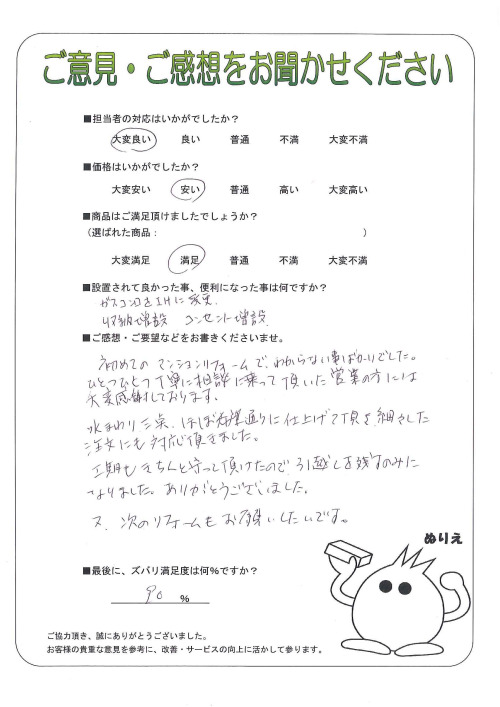 ご意見・ご感想をお聞かせください
■担当者の対応はいかがでしたか？
大変良い 良い 普通 不満 大変不満
■価格はいかがでしたか？
大変安い 安い 普通 高い 大変高い
■商品はご満足頂けましたでしょうか？
（選ばれた商品： ）
大変満足 満足 普通 不満 大変不満
■設置されて良かった事、便利になった事は何ですか？
ガスコンロをIHに変更
収納増設 コンセント増設
■ご感想・ご要望などをお書きくださいませ。
初めてのマンションリフォームで、わからない事ばかりでした。
ひとつひとつ丁寧に相談に乗って頂いた営業の方には
大変感謝しております。
水まわり三点、ほぼ希望通りに仕上げて頂き、細々した
注文にも対応頂きました。
工期もきちんと守って頂けたので、引越しを残すのみに
なりました。ありがとうございました。
又、次のリフォームもお願いしたいです。
ぬりえ
■最後に、ズバリ満足度は何％ですか？
90 ％
ご協力頂き、誠にありがとうございました。
お客様の貴重な意見を参考に、改善・サービスの向上に活かして参ります。